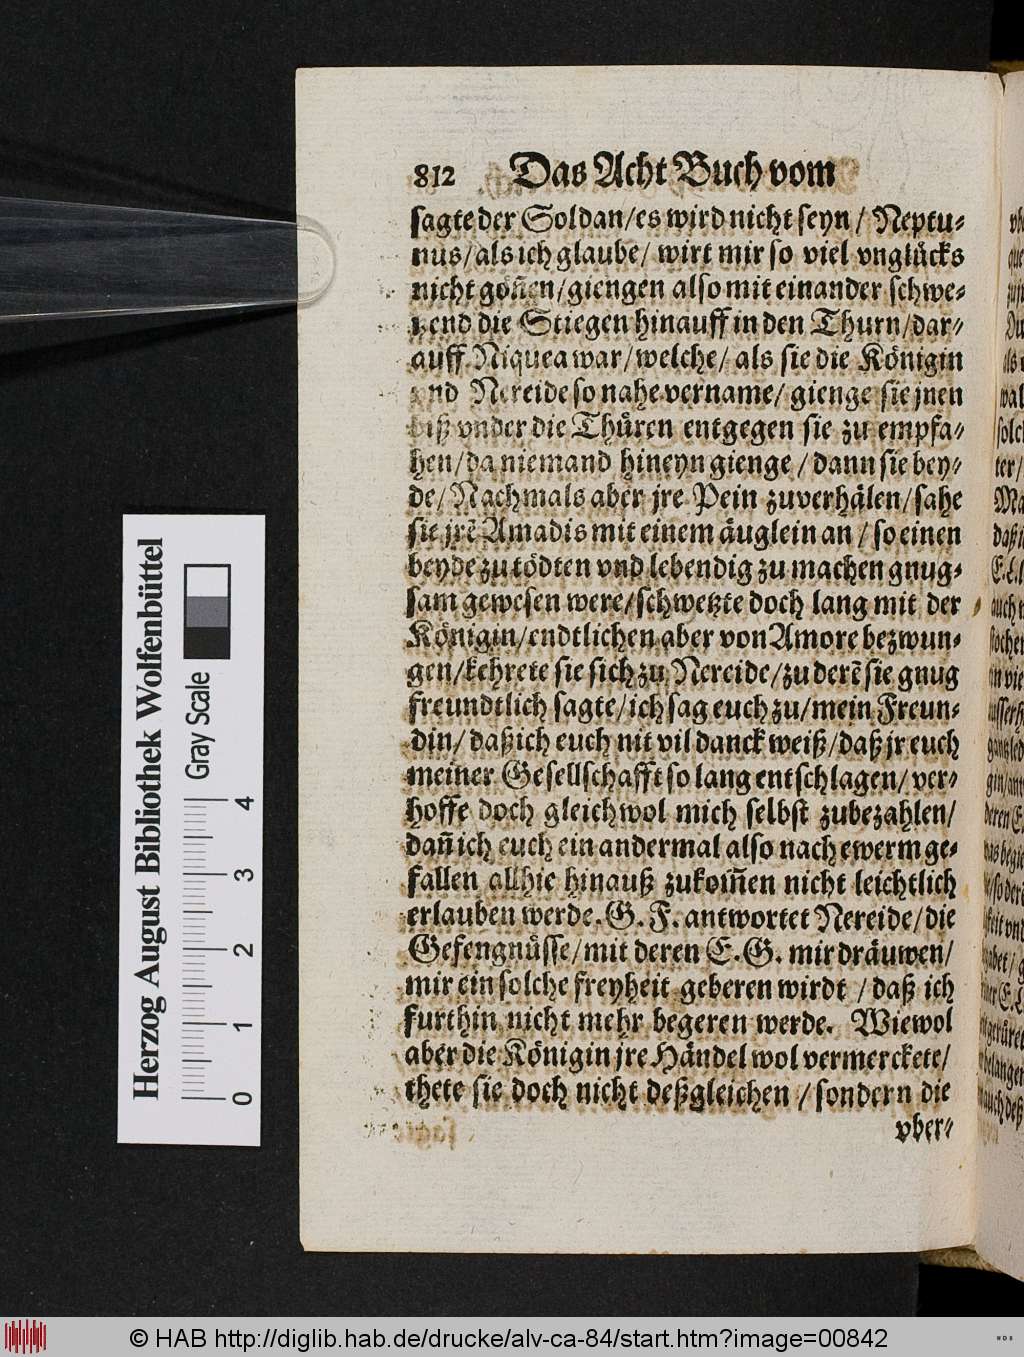 812 Das Acht Buch vom
sagte der Soldan/es wird nicht seyn/ Neptu-
nus/als ich glaube/ wirt mir so viel vnglücks
nicht goñen/giengen also mit einander schwe-
tzend die Stiegen hinauff in den Thurn/dar-
auff Niquea war/welche/ als sie die Königin
vnd Nereide so nahe vername/ gienge sie jnen
biß vnder die Thüren entgegen sie zu empfa-
hen/da niemand hineyn gienge/dann sie bey-
de/Nachmals aber jre Pein zuverhälen/sahe
sie jrẽ Amadis mit einem äuglein an/so einen
beyde zu tödten vnd lebendig zu machen gnug-
sam gewesen were/schwetzte doch lang mit der
Königin/endtlichen aber von Amore bezwun-
gen/kehrete sie sich zu Nereide/zu derẽ sie gnug
freundtlich sagte/ich sag euch zu/mein Freun-
din/daß ich euch nit vil danck weiß/daß jr euch
meiner Gesellschafft so lang entschlagen/ver-
hoffe doch gleichwol mich selbst zubezahlen/
dañ ich euch ein andermal also nach ewerm ge-
fallen allhie hinauß zukom̃en nicht leichtlich
erlauben werde. G. F. antwortet Nereide/die
Gefengnüsse/mit deren E. G. mir dräuwen/
mir ein solche freyheit geberen wirdt/daß ich
furthin nicht mehr begeren werde. Wiewol
aber die Königin jre Händel wol vermerckete/
thete sie doch nicht deßgleichen/sondern die
vber-
Herzog August Bibliothek Wolfenbüttel
Gray Scale
0 1 2 3 4
© HAB http://diglib.hab.de/drucke/alv-ca-84/start.htm?image=00842